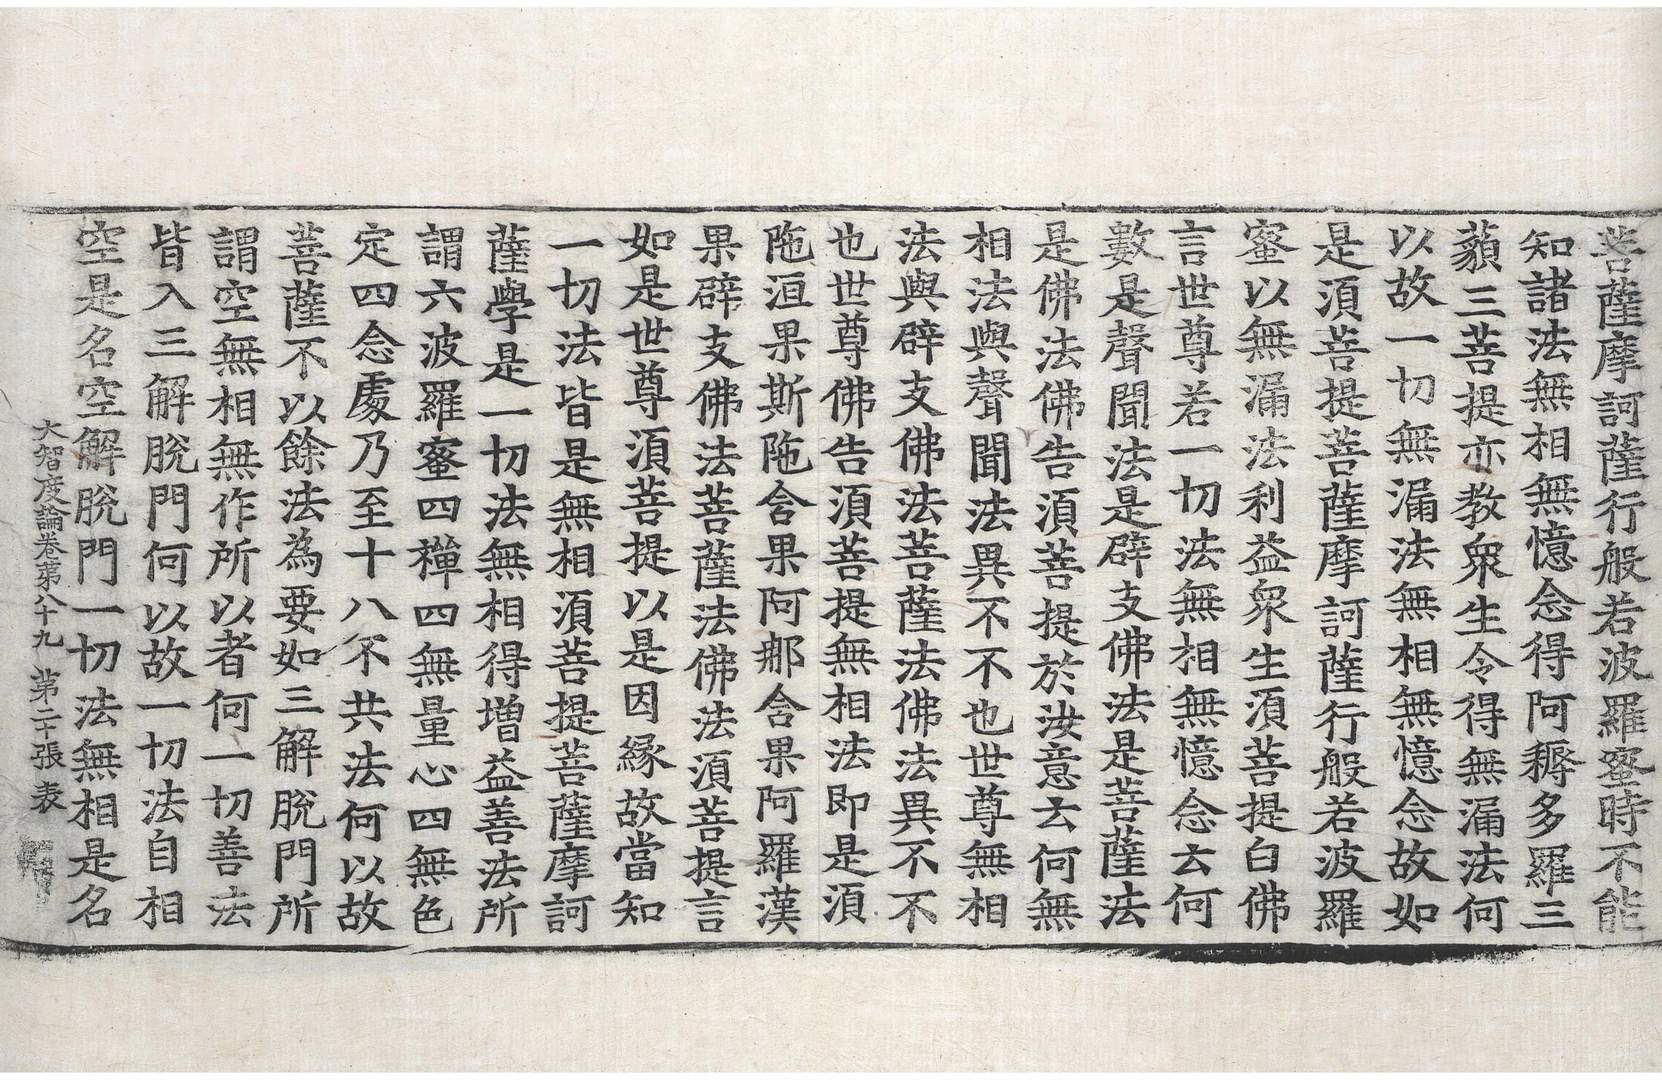 菩薩摩訶薩行般若波羅蜜時不能
知諸法無相無憶念得阿耨多羅三
藐三菩提亦教衆生令得無漏法何
以故一切無漏法無相無憶念故如
是須菩提菩薩摩訶薩行般若波羅
蜜以無漏法利益衆生須菩提白佛
言世尊若一切法無相無憶念云何
數是聲聞法是辟支佛法是菩薩法
是佛法佛告須菩提於汝意云何無
相法與聲聞法異不不也世尊無相
法與辟支佛法菩薩法佛法異不不
也世尊佛告須菩提無相法即是須
陁洹果斯陁含果阿那含果阿羅漢
果辟支佛法菩薩法佛法須菩提言
如是世尊須菩提以是因緣故當知
一切法皆是無相須菩提菩薩摩訶
薩學是一切法無相得增益善法所
謂六波羅蜜四禪四無量心四無色
定四念處乃至十八不共法何以故
菩薩不以餘法為要如三解脫門所
謂空無相無作所以者何一切善法
皆入三解脫門何以故一切法自相
空是名空解脫門一切法無相是名
大智度論卷第八十九 第二十張 表